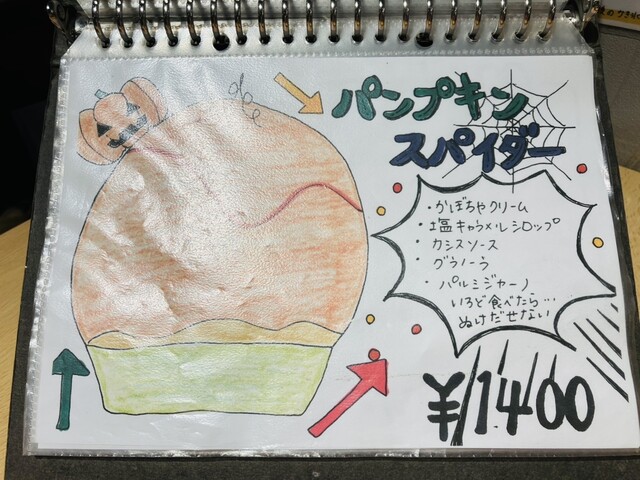 パンプキン
スパイダー
・かぼちゃクリーム
・塩キャラメルシロップ
・カシスソース
・グラノーラ
・パルミジャーノ
いちど食べたら…
ぬけだせない
¥1400